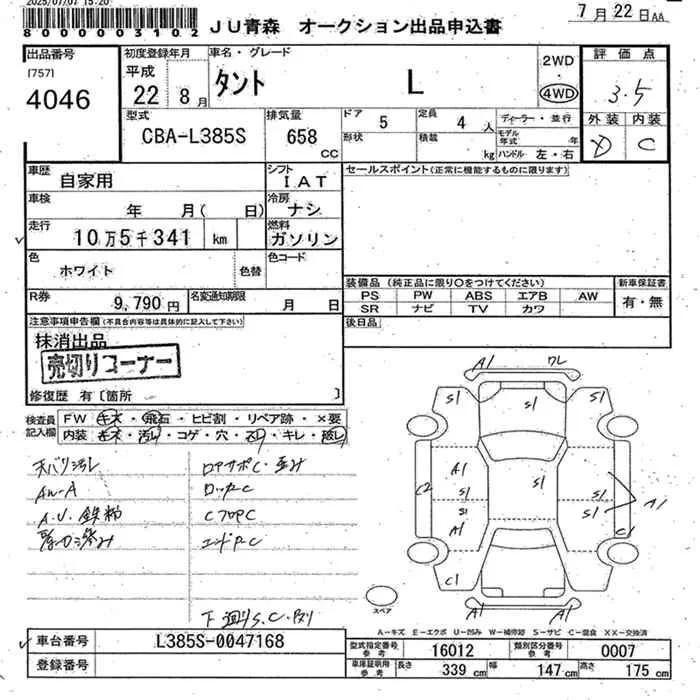 2025/07/07 15:20
8000003102 JU青森 オークション出品申込書 7月22日AA
出品番号 初度登録年月 車名・グレード 2WD 評価点
[757] 平成 タント L 4WD 3.5
4046 22 8月 外装 内装
型式 排気量 ドア 5 定員 4人 ディーラー・並行 D C
CBA-L385S 658 CC 形状 積載 kg モデル年式 年 ハンドル 左・右
車歴 自家用 シフト IAT セールスポイント(正常に機能するものに限ります)
車検 年 月( 日) 冷房 ナシ
走行 10万5千341 km 燃料 ガソリン
色 ホワイト 色替 色コード
装備品(純正品に限り○をつけてください) 新車保証書
R券 9,790円 名変通知期限 月 日 PS PW ABS エアB AW 有・無
SR ナビ TV カワ
注意事項申告欄(不具合内容等は具体的に記入して下さい) 後日品
抹消出品
売切りコーナー
修復歴 有〔箇所 〕
検査員記入欄 FW キズ・飛石・ヒビ割・リペア跡・×要
内装 キズ・汚レ・コゲ・穴・スレ・キレ・破レ
天バリ汚レ ロアサポC・歪み
AW-A ロッカーC
A.U.鉄粉 CフロアC
エンドP.C
下廻りS.C.
A1 ワレ
S1 S1 S1
A1 S1 S1
C2 S1 S1 A1
A1 C1
C1
A1 A1
スペア
A-キズ E-エクボ U-凹み W-補修跡 S-サビ C-腐食 XX-交換済
車台番号 L385S-0047168 型式指定番号 参考 16012 類別区分番号 参考 0007
登録番号 車庫証明用 参考 長さ 339cm 幅 147cm 高さ 175cm